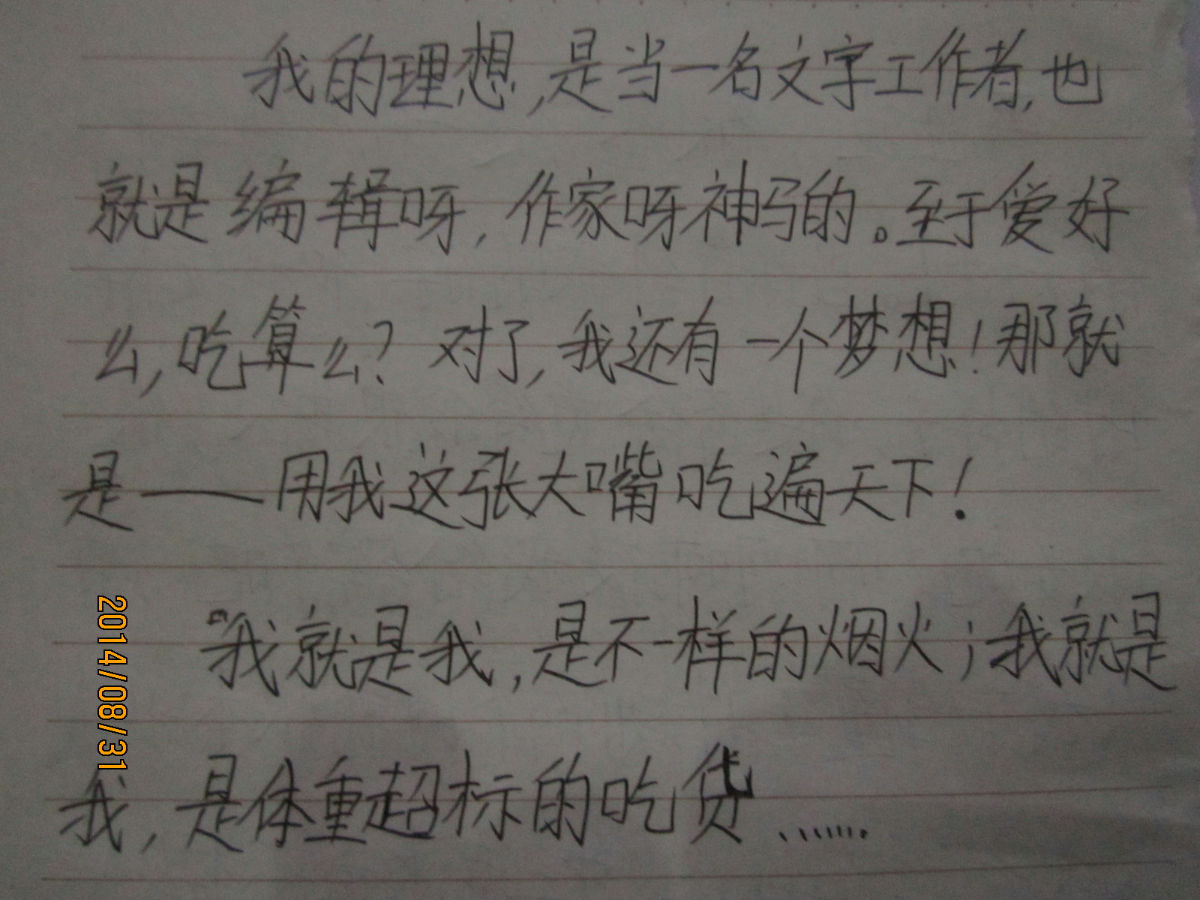 我的理想,是当一名文字工作者,也
就是编辑呀,作家呀神马的。至于爱好
么,吃算么?对了,我还有一个梦想!那就
是——用我这张大嘴吃遍天下!
“我就是我,是不一样的烟火;我就是
我,是体重超标的吃货.......
2014/08/31